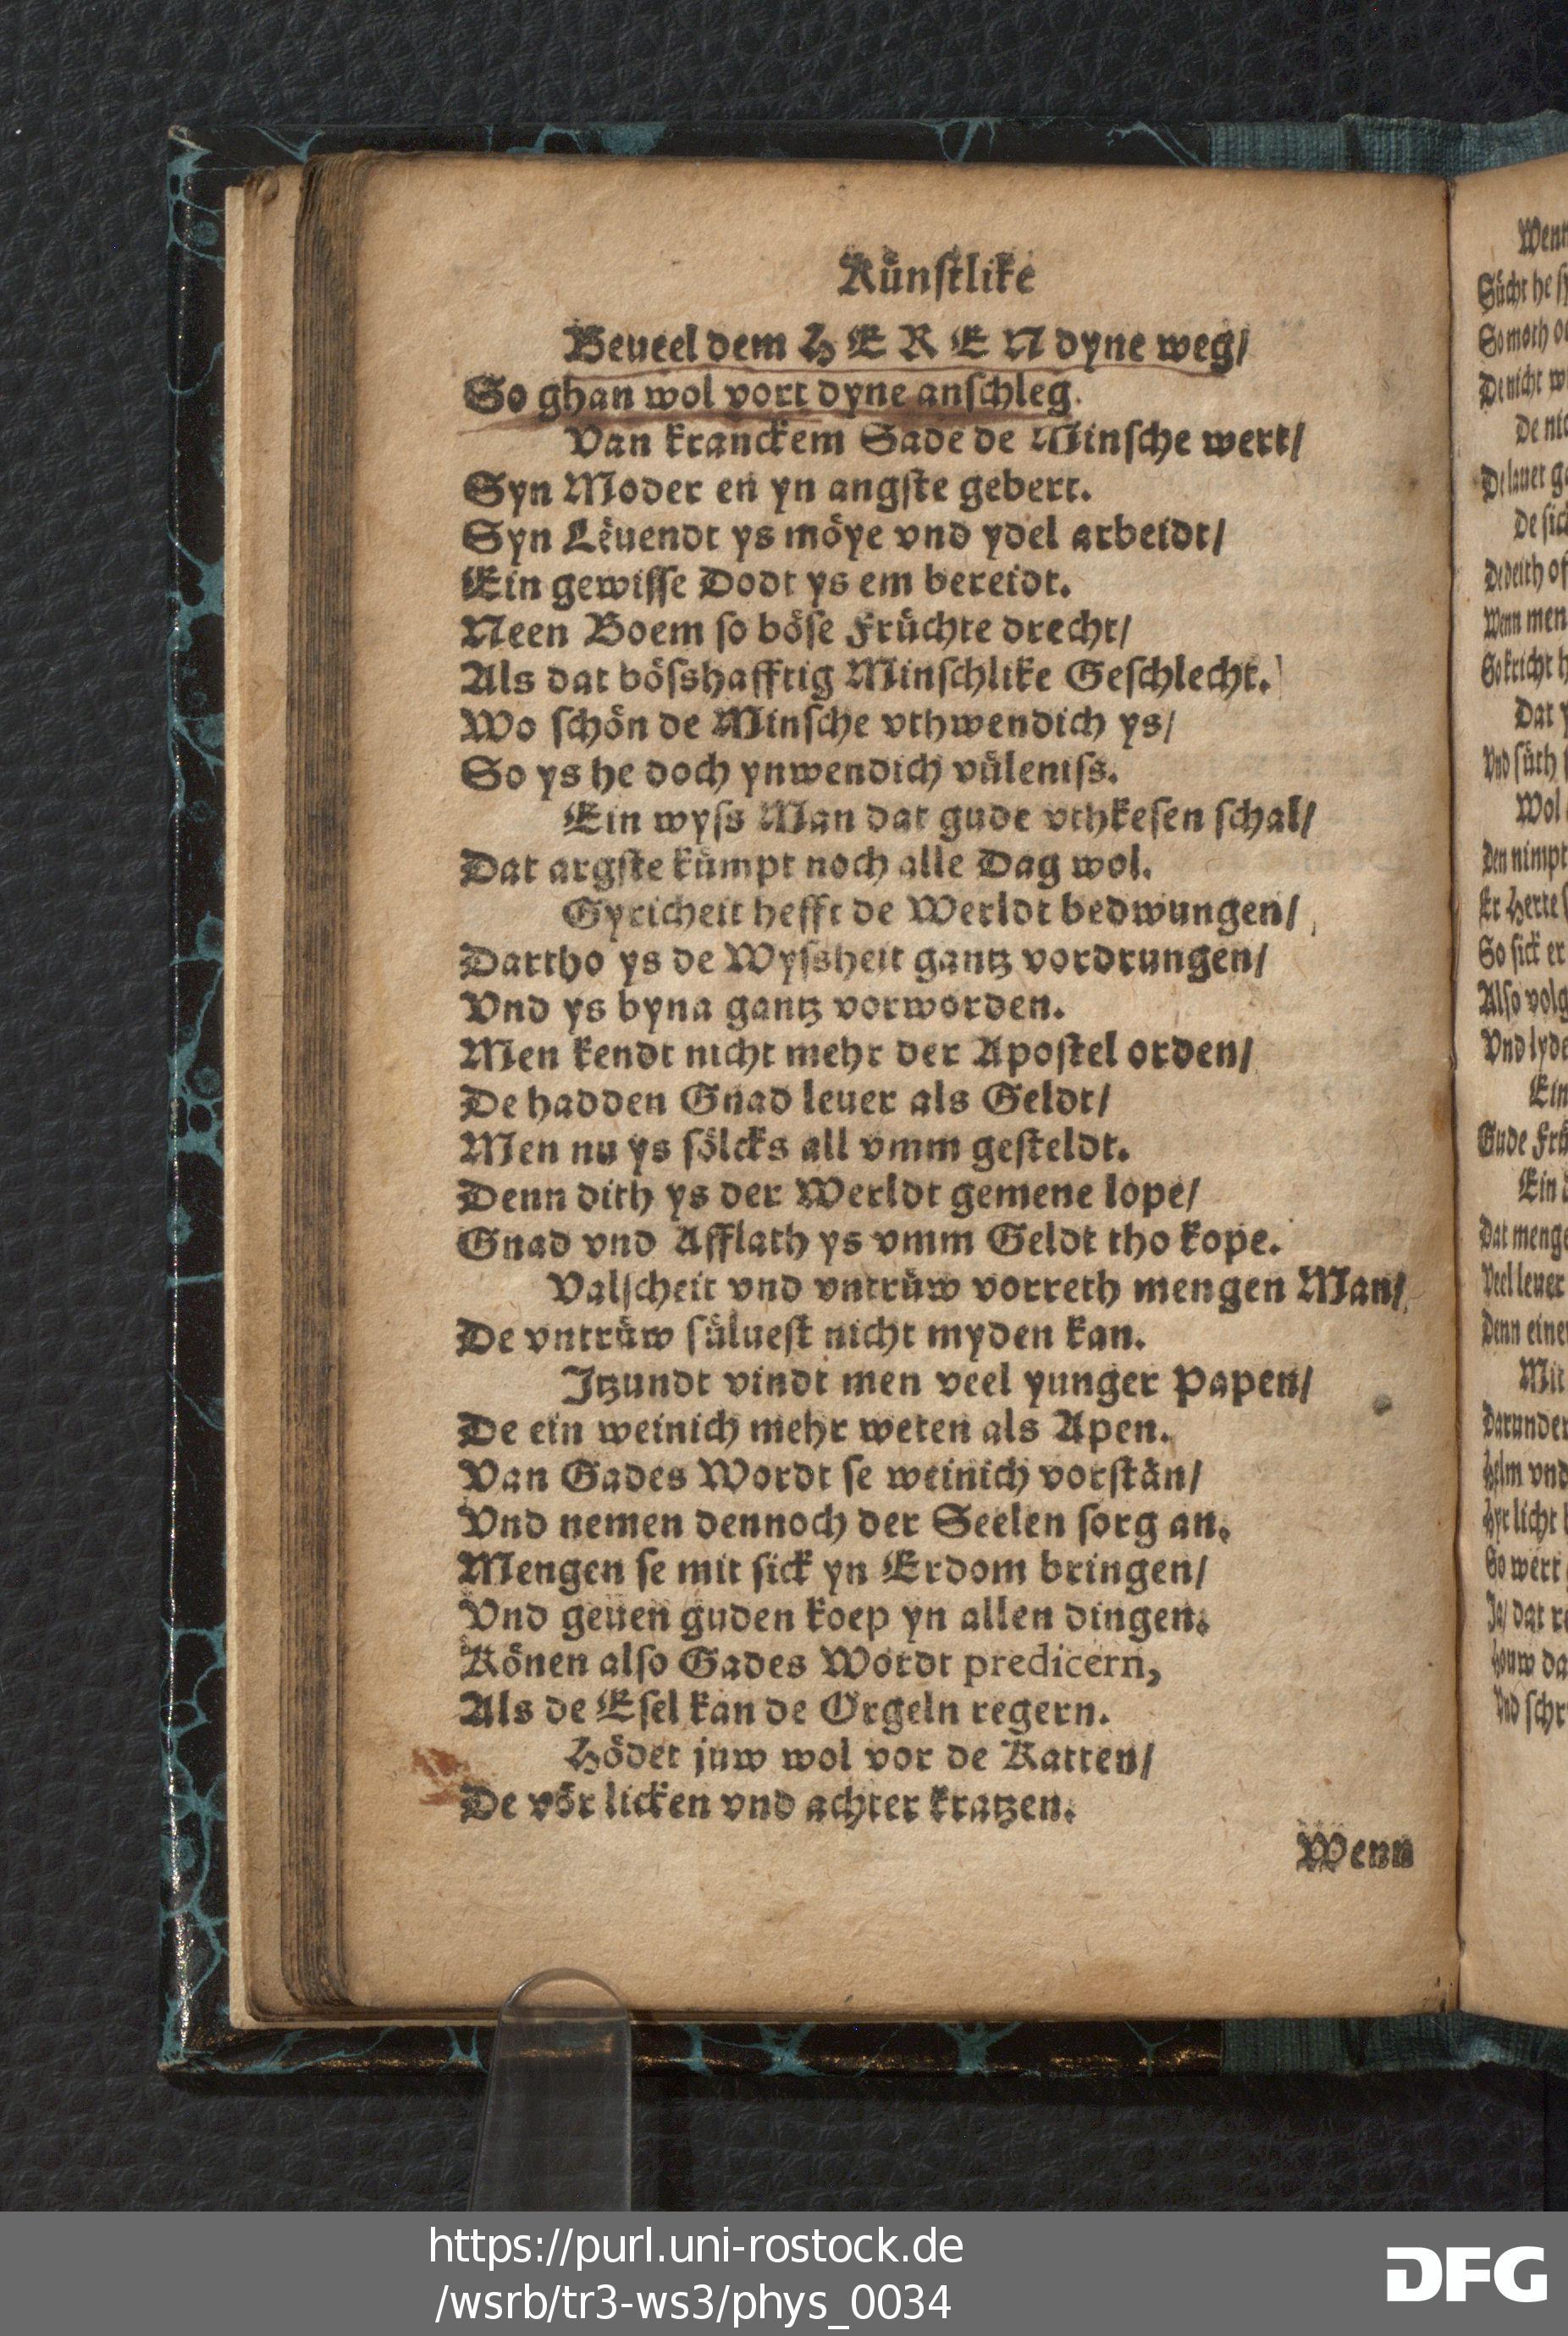 Kuͤnſtlike
Beueel dem HEREN dyne weg/
So ghan wol vort dyne anſchleg.
Van kranckem Sade de Minſche wert/
Syn Moder en yn angſte gebert.
Syn Leͤuendt ys moͤye vnd ydel arbeidt/
Ein gewiſſe Dodt ys em bereidt.
Neen Boem ſo boͤſe Fruͤchte drecht/
Als dat boͤſshafftig Minſchlike Geſchlecht.
Wo ſchoͤn de Minſche vthwendich ys/
So ys he doch ynwendich vuͤleniſs.
Ein wyſs Man dat gude vthkeſen ſchal/
Dat argſte kuͤmpt noch alle Dag wol.
Gyricheit hefft de Werldt bedwungen/
Dartho ys de Wyſsheit gantz vordrungen/
Vnd ys byna gantz vorworden.
Men kendt nicht mehr der Apoſtel orden/
De hadden Gnad leuer als Geldt/
Men nu ys ſoͤlcks all vmm geſteldt.
Denn dith ys der Werldt gemene lope/
Gnad vnd Afflath ys vmm Geldt tho kope.
Valſcheit vnd vntruͤw vorreth mengen Man/
De vntruͤw ſuͤlueſt nicht myden kan.
Itzundt vindt men veel yunger Papen/
De ein weinich mehr weten als Apen.
Van Gades Wordt ſe weinich vorſtaͤn/
Vnd nemen dennoch der Seelen ſorg an.
Mengen ſe mit ſick yn Erdom bringen/
Vnd geuen guden koep yn allen dingen.
Koͤnen alſo Gades Wordt predicern,
Als de Eſel kan de Orgeln regern.
Hoͤdet juw wol vor de Katten/
De voͤr licken vnd achter kratzen.
Wenn
Wenn
Suͤcht he
So moth
De nicht
De
De lauer
De
De deith
Wenn men
So kricht
Dat
Vnd ſuͤth
Wol
Den nimpt
Er Herte
So ſick er
Alſo volg
Vnd lyde
Ein
Gude
Ein
Dat menge
Veel leuer
Denn eine
Mit
Darunder
Helm vnd
licht
So wert
Ja/ dat
Houw da
Vnd
https://purl.uni-rostock.de
/wsrb/tr3-ws3/phys_0034
DFG